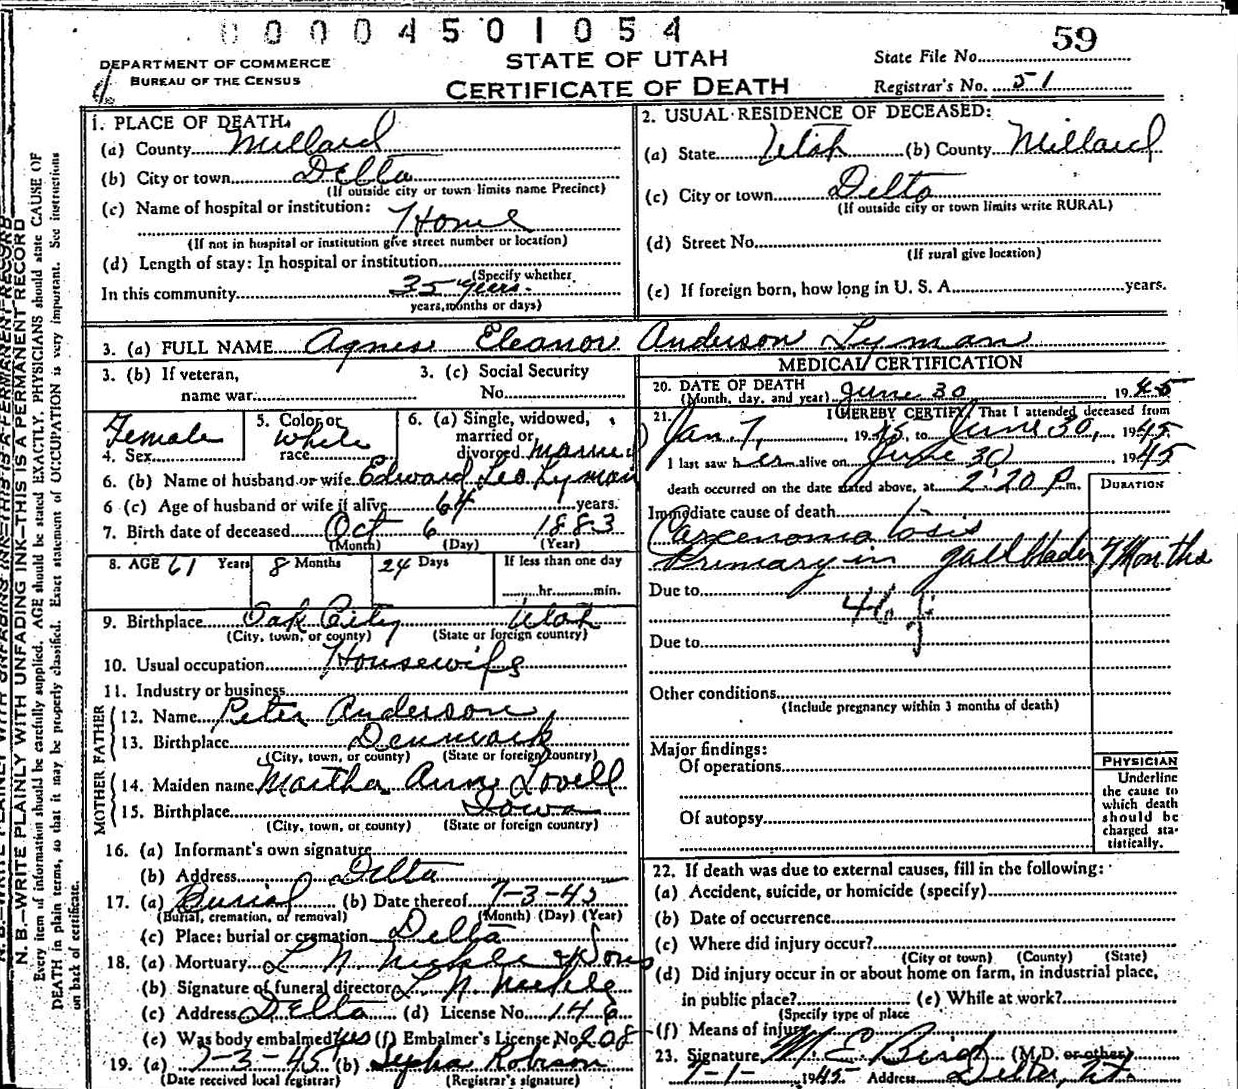 00004501054
59
DEPARTMENT OF COMMERCE
BUREAU OF THE CENSUS
STATE OF UTAH
CERTIFICATE OF DEATH
State File No.
Registrar's No. 51
1. PLACE OF DEATH.
(a) County Millard
(b) City or town Delta
(If outside city or town limits name Precinct)
(c) Name of hospital or institution:
Home
(If not in hospital or institution give street number or location)
(d) Length of stay: In hospital or institution
(Specify whether
In this community 35 years.
years, months or days)
2. USUAL RESIDENCE OF DECEASED:
(a) State Utah (b) County Millard
(c) City or town Delta
(If outside city or town limits write RURAL)
(d) Street No.
(If rural give location)
(e) If foreign born, how long in U. S. A. years.
3. (a) FULL NAME Agnes Eleanor Anderson Lyman
3. (b) If veteran,
name war
3. (c) Social Security
No.
Female
4. Sex
5. Color or
White
race
6. (a) Single, widowed,
married or
divorced Married
6. (b) Name of husband or wife Edward Leo Lyman
6 (c) Age of husband or wife if alive 64 years.
7. Birth date of deceased Oct 6 1883
(Month) (Day) (Year)
8. AGE 61 Years 8 Months 24 Days
If less than one day
hr. min.
9. Birthplace Oak City Utah
(City, town, or county) (State or foreign country)
10. Usual occupation Housewife
11. Industry or business
FATHER
12. Name Peter Anderson
13. Birthplace Denmark
(City, town, or county) (State or foreign country)
MOTHER
14. Maiden name Martha Anne Lovell
15. Birthplace Iowa
(City, town, or county) (State or foreign country)
16. (a) Informant's own signature
(b) Address Delta
17. (a) Burial (b) Date thereof 7-3-45
(Burial, cremation, or removal) (Month) (Day) (Year)
(c) Place: burial or cremation Delta
18. (a) Mortuary L N Nickle & Sons
(b) Signature of funeral director L N Nickle
(c) Address Delta (d) License No. 146
(e) Was body embalmed yes (f) Embalmer's License No. 208
19. (a) 7-3-45 (b) Robison
(Date received local registrar) (Registrar's signature)
MEDICAL CERTIFICATION
20. DATE OF DEATH
(Month, day, and year) June 30 1945
21. I HEREBY CERTIFY, That I attended deceased from
Jan 7, 1945, to June 30, 1945
I last saw her alive on June 30 1945
death occurred on the date stated above, at 2:20 P.m.
DURATION
Immediate cause of death
Carcenomatosis
Primary in gall bladder 7 Months
Due to
46 f
Due to
Other conditions
(Include pregnancy within 3 months of death)
Major findings:
Of operations
Of autopsy
PHYSICIAN
Underline
the cause to
which death
should be
charged sta-
tistically.
22. If death was due to external causes, fill in the following:
(a) Accident, suicide, or homicide (specify)
(b) Date of occurrence
(c) Where did injury occur?
(City or town) (County) (State)
(d) Did injury occur in or about home on farm, in industrial place,
in public place? (e) While at work?
(Specify type of place
(f) Means of injury
23. Signature M E Bird (M.D. or other)
7-1- 1945 Address Delta, Ut.
N. B.—WRITE PLAINLY WITH UNFADING INK—THIS IS A PERMANENT RECORD
N. B.—WRITE PLAINLY WITH UNFADING INK—THIS IS A PERMANENT RECORD
Every item of information should be carefully supplied. AGE should be stated EXACTLY. PHYSICIANS should state CAUSE OF
DEATH in plain terms, so that it may be properly classified. Exact statement of OCCUPATION is very important. See instructions
on back of certificate.